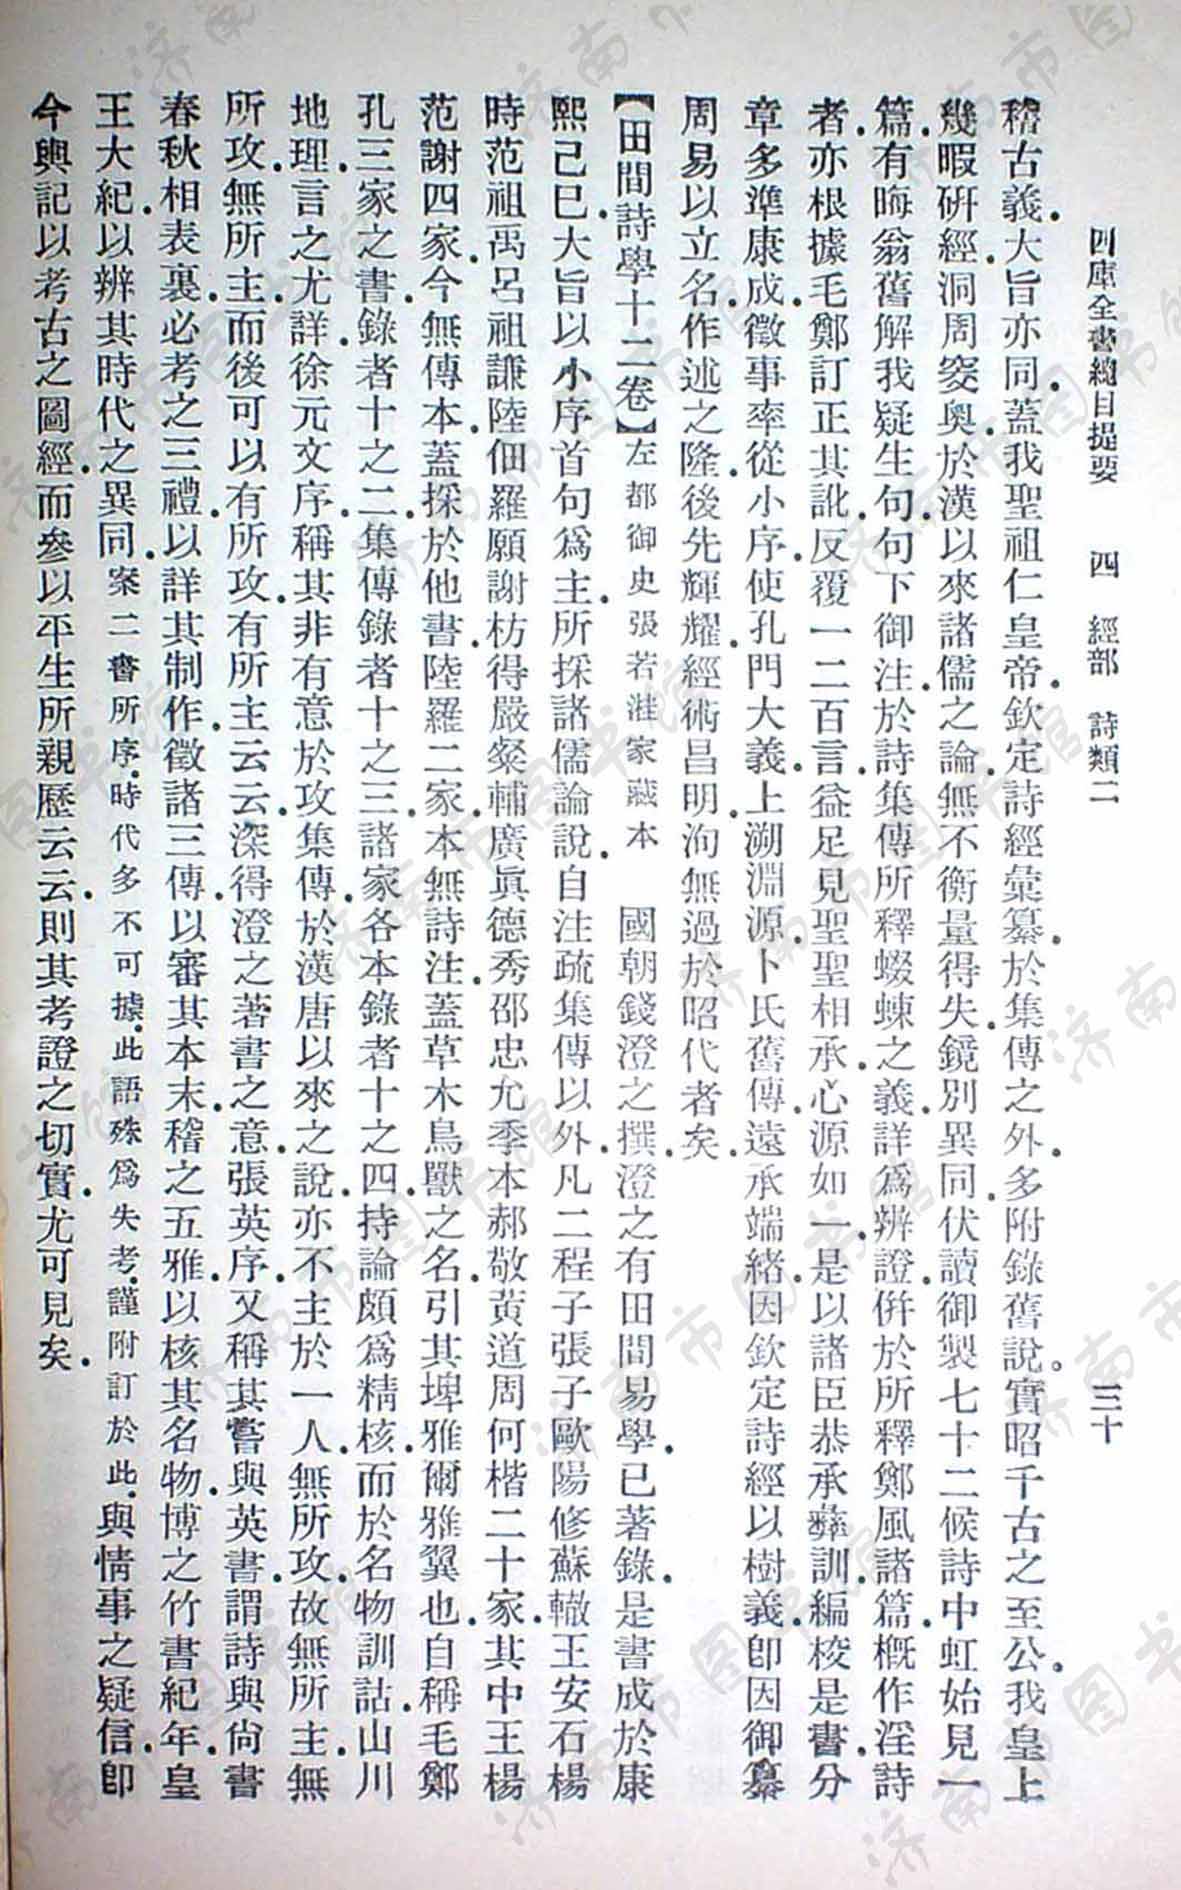 四庫全書總目提要 四 經部 詩類二 三十
稽古義.大旨亦同.蓋我聖祖仁皇帝.欽定詩經彙纂.於集傳之外.多附錄舊說。實昭千古之至公.我皇上
幾暇研經.洞周窔奧.於漢以來諸儒之論.無不衡量得失.鏡別異同.伏讀御製七十二候詩中虹始見一
篇.有晦翁舊解我疑生句.句下御注.於詩集傳所釋蝃蝀之義.詳爲辨證.併於所釋鄭風諸篇.概作淫詩
者.亦根據毛鄭訂正其訛.反覆一二百言.益足見聖聖相承.心源如一.是以諸臣恭承彝訓.編校是書.分
章多準康成.徵事率從小序.使孔門大義.上溯淵源.卜氏舊傳.遠承端緒.因欽定詩經以樹義.卽因御纂
周易以立名.作述之隆.後先輝耀.經術昌明.洵無過於昭代者矣.
【田間詩學十二卷】左都御史張若溎家藏本 國朝錢澄之撰.澄之有田間易學.已著錄.是書成於康
熙己巳.大旨以小序首句爲主.所採諸儒論說.自注疏集傳以外.凡二程子張子歐陽修蘇轍王安石楊
時范祖禹呂祖謙陸佃羅願謝枋得嚴粲輔廣眞德秀邵忠允季本郝敬黃道周何楷二十家.其中王楊
范謝四家.今無傳本.蓋採於他書.陸羅二家.本無詩注.蓋草木鳥獸之名.引其埤雅爾雅翼也.自稱毛鄭
孔三家之書.錄者十之二.集傳錄者十之三.諸家各本錄者十之四.持論頗爲精核.而於名物訓詁.山川
地理.言之尤詳.徐元文序.稱其非有意於攻集傳.於漢唐以來之說.亦不主於一人.無所攻.故無所主.無
所攻.無所主.而後可以有所攻.有所主云云.深得澄之著書之意.張英序.又稱其嘗與英書.謂詩與尚書
春秋相表裏.必考之三禮.以詳其制作.徵諸三傳.以審其本末.稽之五雅.以核其名物.博之竹書紀年.皇
王大紀.以辨其時代之異同.案二書所序.時代多不可據.此語殊爲失考.謹附訂於此.與情事之疑信.卽
今輿記以考古之圖經.而參以平生所親歷云云.則其考證之切實.尤可見矣.